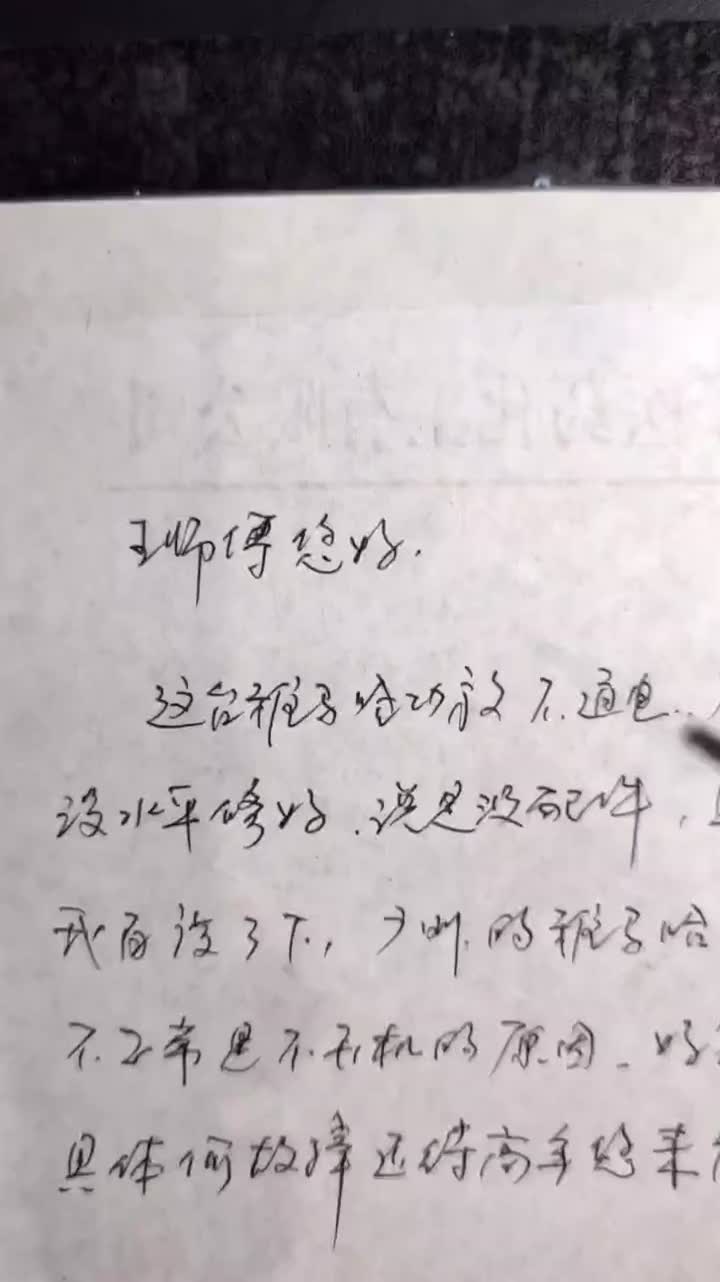 有限公司
王师傅您好.
这台雅马哈功放不通电..
没水平修好.说是没配件,
我百度了下,广州的雅马哈
不正常是不开机的原因.好
具体何故障还待高手您来